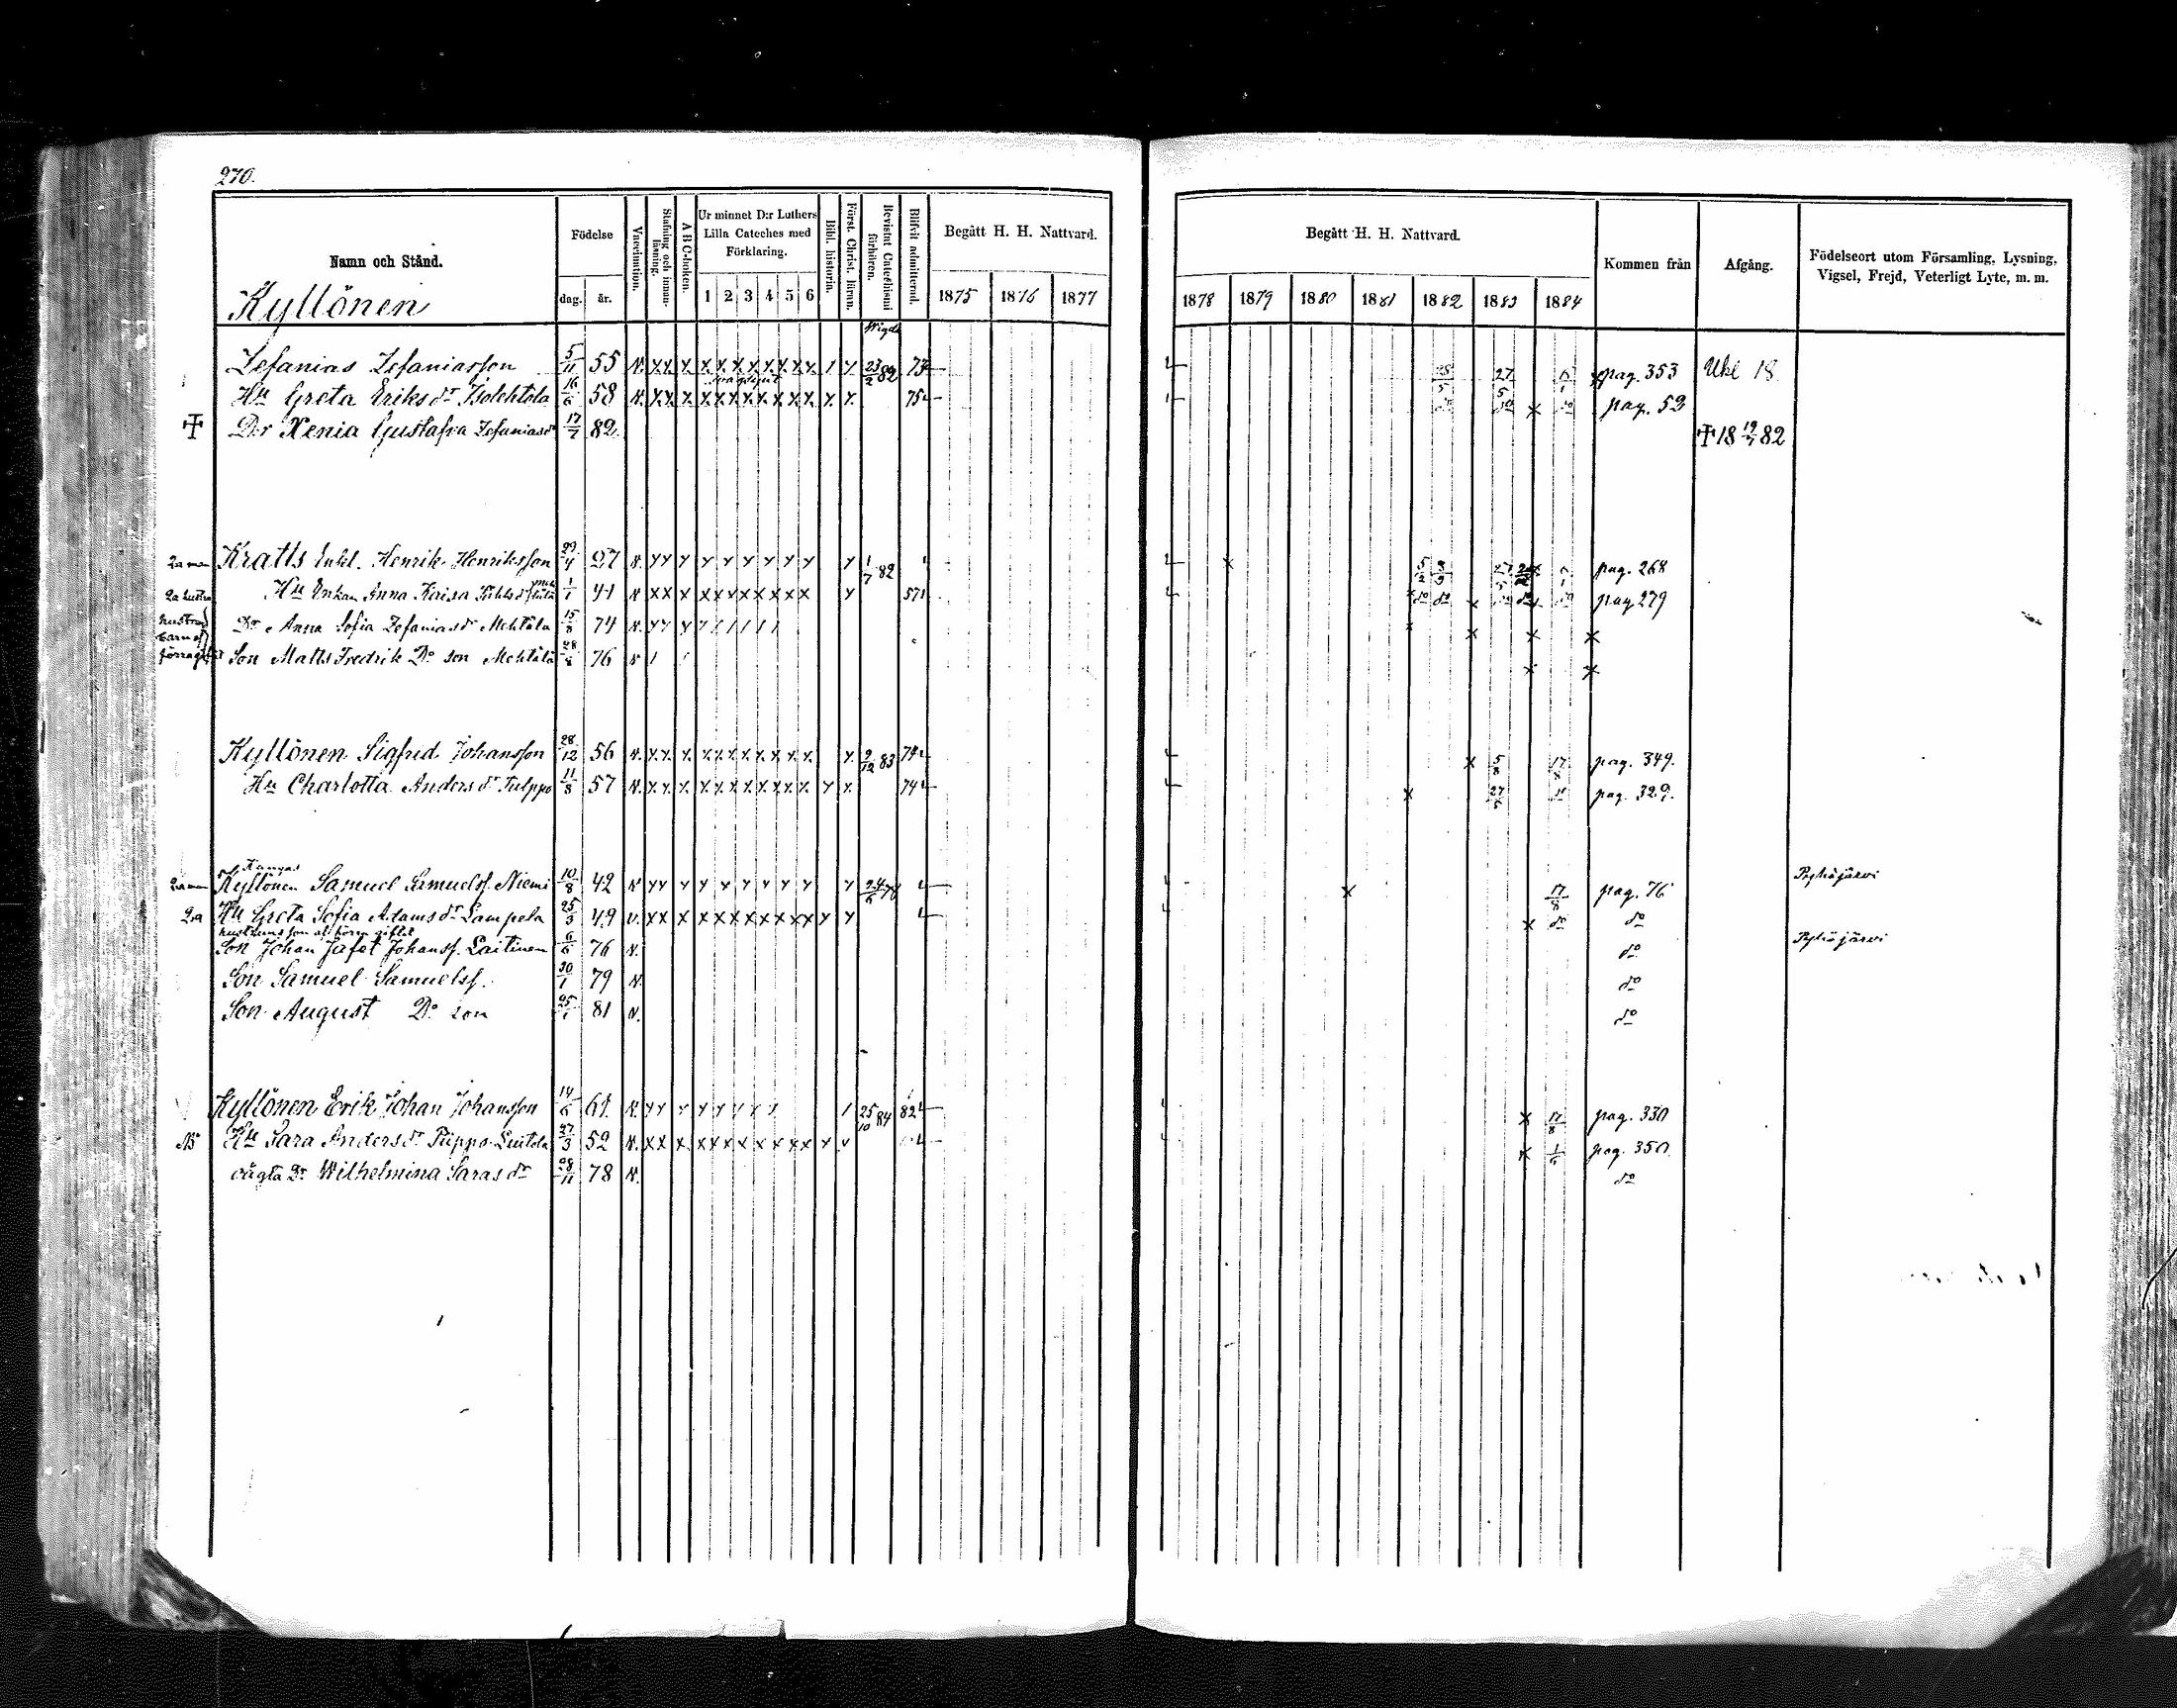 270.
Namn och Stånd.
Kyllönen
Födelse
dag. år.
Vaccination.
Stafning och innanläsning.
A B C-boken.
Ur minnet D:r Luthers Lilla Cateches med Förklaring.
1 2 3 4 5 6
Bibl. historia.
Först. Christ. lärun.
Bevistat Catechismi förhören.
Blifvit admitterad.
Begått H. H. Nattvard.
1875 1876 1877
Begått H. H. Nattvard.
1878 1879 1880 1881 1882 1883 1884
Kommen från
Afgång.
Födelseort utom Församling, Lysning, Vigsel, Frejd, Veterligt Lyte, m. m.
Wigde
Zefanias Zefaniasson 5/11 55 23/2 82 73 25/5 27/5 pag. 353 Uhl 18
Hu Greta Eriksdr 16/6 58 75 pag. 52
D:r Xenia Gustafva Zefaniasdr 17/7 82 18 19/7 82
2a man Kratts Enkl. Henrik Henriksson 29/4 27 1/7 82 pag. 268
2a hustru Hu Enkan Anna Kaisa 1/1 41 57 pag 279
hustruns barn af förra giftet
Dr Anna Sofia Zefaniasdr Mehtälä 15/8 74
Son Matts Fredrik Do son Mehtälä 28/8 76
Kyllönen Sigfrid Johansson 28/12 56 2/12 83 74 5/8 17/8 pag. 349.
Hu Charlotta Andersdr Tulppo 11/8 57 74 27/5 pag. 329.
Kangas
2a man Kyllönen Samuel Samuelss. Niemi 10/8 42 24/6 78 17/8 pag. 76 Pyhäjärvi
2a Hu Greta Sofia Adamsdr Lampela 25/3 49 do do
hustruns son af förra giftet
Son Johan Jafet Johanss. Laitinen 6/6 76 do Pyhäjärvi
Son Samuel Samuelss. 30/1 79 do
Son August Do son 25/7 81 do
Kyllönen Erik Johan Johansson 14/6 61 25/10 84 82 17/8 pag. 330
Hu Sara Andersdr Piippo 27/3 52 1/6 pag. 350
oägta Dr Wilhelmina Sarasdr 28/11 78 do